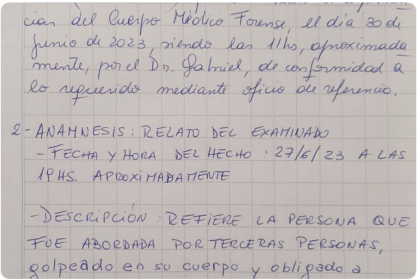 cias del Cuerpo Médico Forense, el día 30 de
junio de 2023, siendo las 11hs, aproximada
mente, por el Dr. Gabriel, de conformidad a
lo requerido mediante oficio de referencia.
2-ANAMNESIS: RELATO DEL EXAMINADO
- FECHA Y HORA DEL HECHO: 27/6/23 A LAS
19HS. APROXIMADAMENTE
-DESCRIPCIÓN: REFIERE LA PERSONA QUE
FUE ABORDADA POR TERCERAS PERSONAS,
golpeado en su cuerpo y obligado a